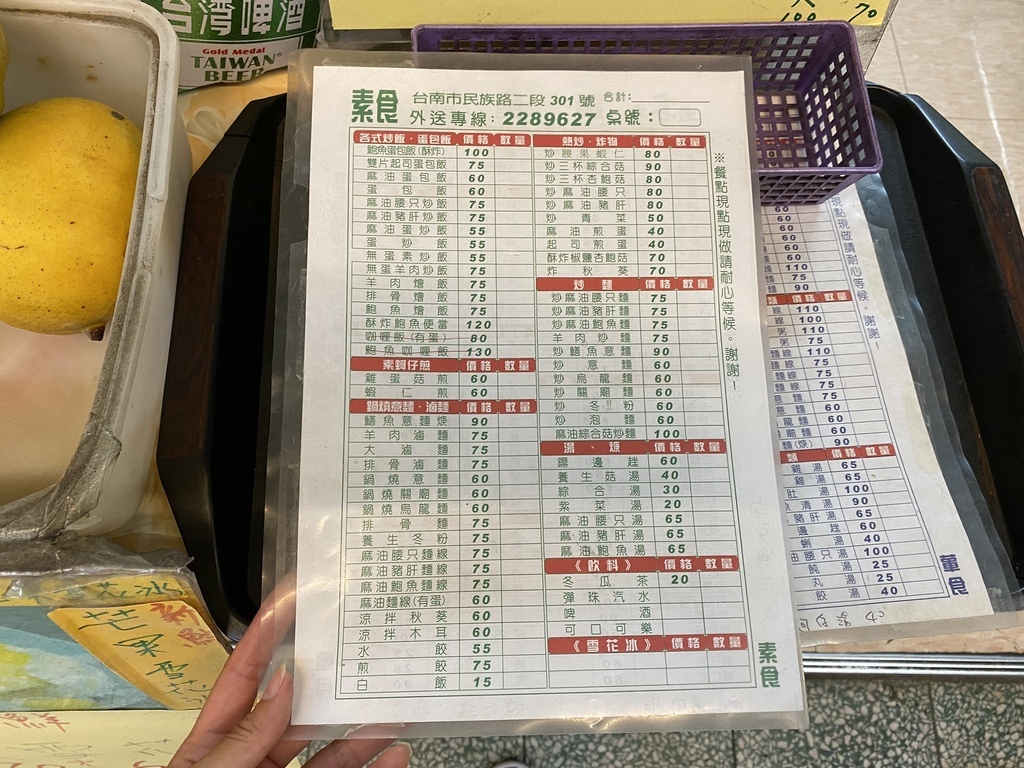 台湾啤酒
Gold Medal
TAIWAN
BEER
100 70
素食 台南市民族路二段 301 號 合計:
外送專線: 2289627 桌號:
各式炒飯·蛋包飯 價格 數量
鮑魚蛋包飯(酥炸) 100
雙片起司蛋包飯 75
麻油蛋包飯 60
蛋包飯 60
麻油腰只炒飯 75
麻油豬肝炒飯 75
麻油蛋炒飯 55
蛋炒飯 55
無蛋素炒飯 55
無蛋羊肉炒飯 75
羊肉燴飯 75
排骨燴飯 75
鮑魚燴飯 75
酥炸鮑魚便當 120
咖喱飯(有蛋) 80
鮑魚咖喱飯 130
素蚵仔煎 價格 數量
雞蛋菇煎 60
蝦仁煎 60
鍋燒意麵·滷麵 價格 數量
鱔魚意麵焿 90
羊肉滷麵 75
大滷麵 75
排骨滷麵 75
鍋燒意麵 60
鍋燒關廟麵 60
鍋燒烏龍麵 60
排骨麵 75
養生冬粉 75
麻油腰只麵線 75
麻油豬肝麵線 75
麻油鮑魚麵線 75
麻油麵線(有蛋) 60
涼拌秋葵 60
涼拌木耳 60
水餃 55
煎餃 75
白飯 15
熱炒·炸物 價格 數量
炒腰果蝦仁 80
炒三杯綜合菇 90
炒三杯杏鮑菇 80
炒麻油腰只 80
炒麻油豬肝 80
炒青菜 50
麻油煎蛋 40
起司煎蛋 40
酥炸椒鹽杏鮑菇 70
炸秋葵 70
炒麵 價格 數量
炒麻油腰只麵 75
炒麻油豬肝麵 75
炒麻油鮑魚麵 75
羊肉炒麵 75
炒鱔魚意麵 90
炒意麵 60
炒烏龍麵 60
炒關廟麵 60
炒冬粉 60
炒泡麵 60
麻油綜合菇炒麵 100
湯、焿 價格 數量
鼎邊趖 60
養生菇湯 40
綜合湯 30
紫菜湯 20
麻油腰只湯 65
麻油豬肝湯 65
麻油鮑魚湯 65
《飲料》 價格 數量
冬瓜茶 20
彈珠汽水
啤酒
可口可樂
《雪花冰》 價格 數量
※餐點現點現做請耐心等候。謝謝!
素食
現點現做請耐心等候。謝謝!
60
60
60
60
110
75
90
價格 數量
110
線 100
粥 75
麵線 110
麵線 75
線 75
60
60
60
麵(焿) 90
類 價格 數量
雞湯 65
雞湯 65
肚湯 100
清湯 90
豬肝湯 65
邊趖 60
蜊湯 40
油腰只湯 100
飩湯 25
丸湯 25
餃湯 40
葷食
芒果雪花